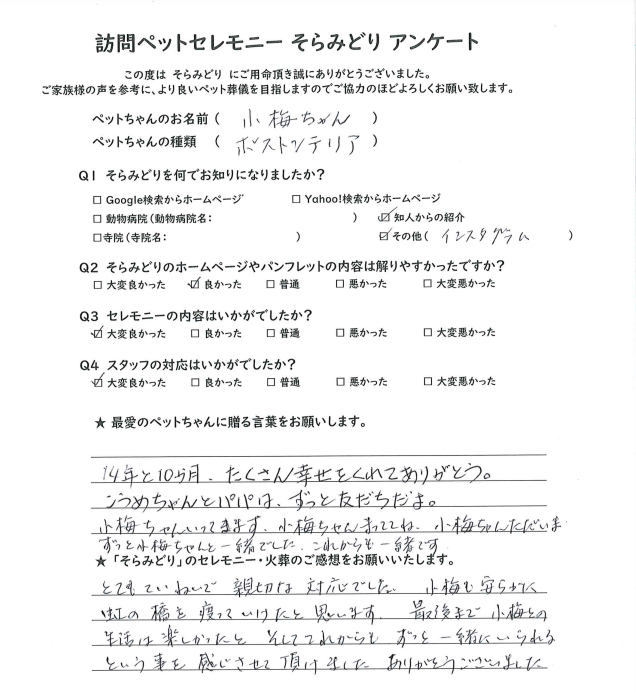 訪問ペットセレモニー そらみどり アンケート
この度は そらみどり にご用命頂き誠にありがとうございました。
ご家族様の声を参考に、より良いペット葬儀を目指しますのでご協力のほどよろしくお願い致します。
ペットちゃんのお名前 ( 小梅ちゃん )
ペットちゃんの種類 ( ボストンテリア )
Q1 そらみどりを何でお知りになりましたか?
□ Google検索からホームページ □ Yahoo!検索からホームページ
□ 動物病院 (動物病院名: ) ☑ 知人からの紹介
□ 寺院 (寺院名: ) ☑ その他 ( インスタグラム )
Q2 そらみどりのホームページやパンフレットの内容は解りやすかったですか?
□ 大変良かった ☑ 良かった □ 普通 □ 悪かった □ 大変悪かった
Q3 セレモニーの内容はいかがでしたか?
☑ 大変良かった □ 良かった □ 普通 □ 悪かった □ 大変悪かった
Q4 スタッフの対応はいかがでしたか?
☑ 大変良かった □ 良かった □ 普通 □ 悪かった □ 大変悪かった
★ 最愛のペットちゃんに贈る言葉をお願いします。
14年と10ヶ月、たくさん幸せをくれてありがとう。
こうめちゃんとパパは、ずっと友だちだよ。
小梅ちゃんいってきます、小梅ちゃんまっててね、小梅ちゃんただいま
ずっと小梅ちゃんと一緒でした。これからも一緒です
★ 「そらみどり」のセレモニー・火葬のご感想をお願いいたします。
とてもていねいで 親切な 対応でした。 小梅も 安らかに
虹の 橋を 渡って いけたと 思います。 最後まで 小梅との
生活は 楽しかったと そして これからも ずっと 一緒に いられる
という 事を 感じさせて 頂けました ありがとうございました